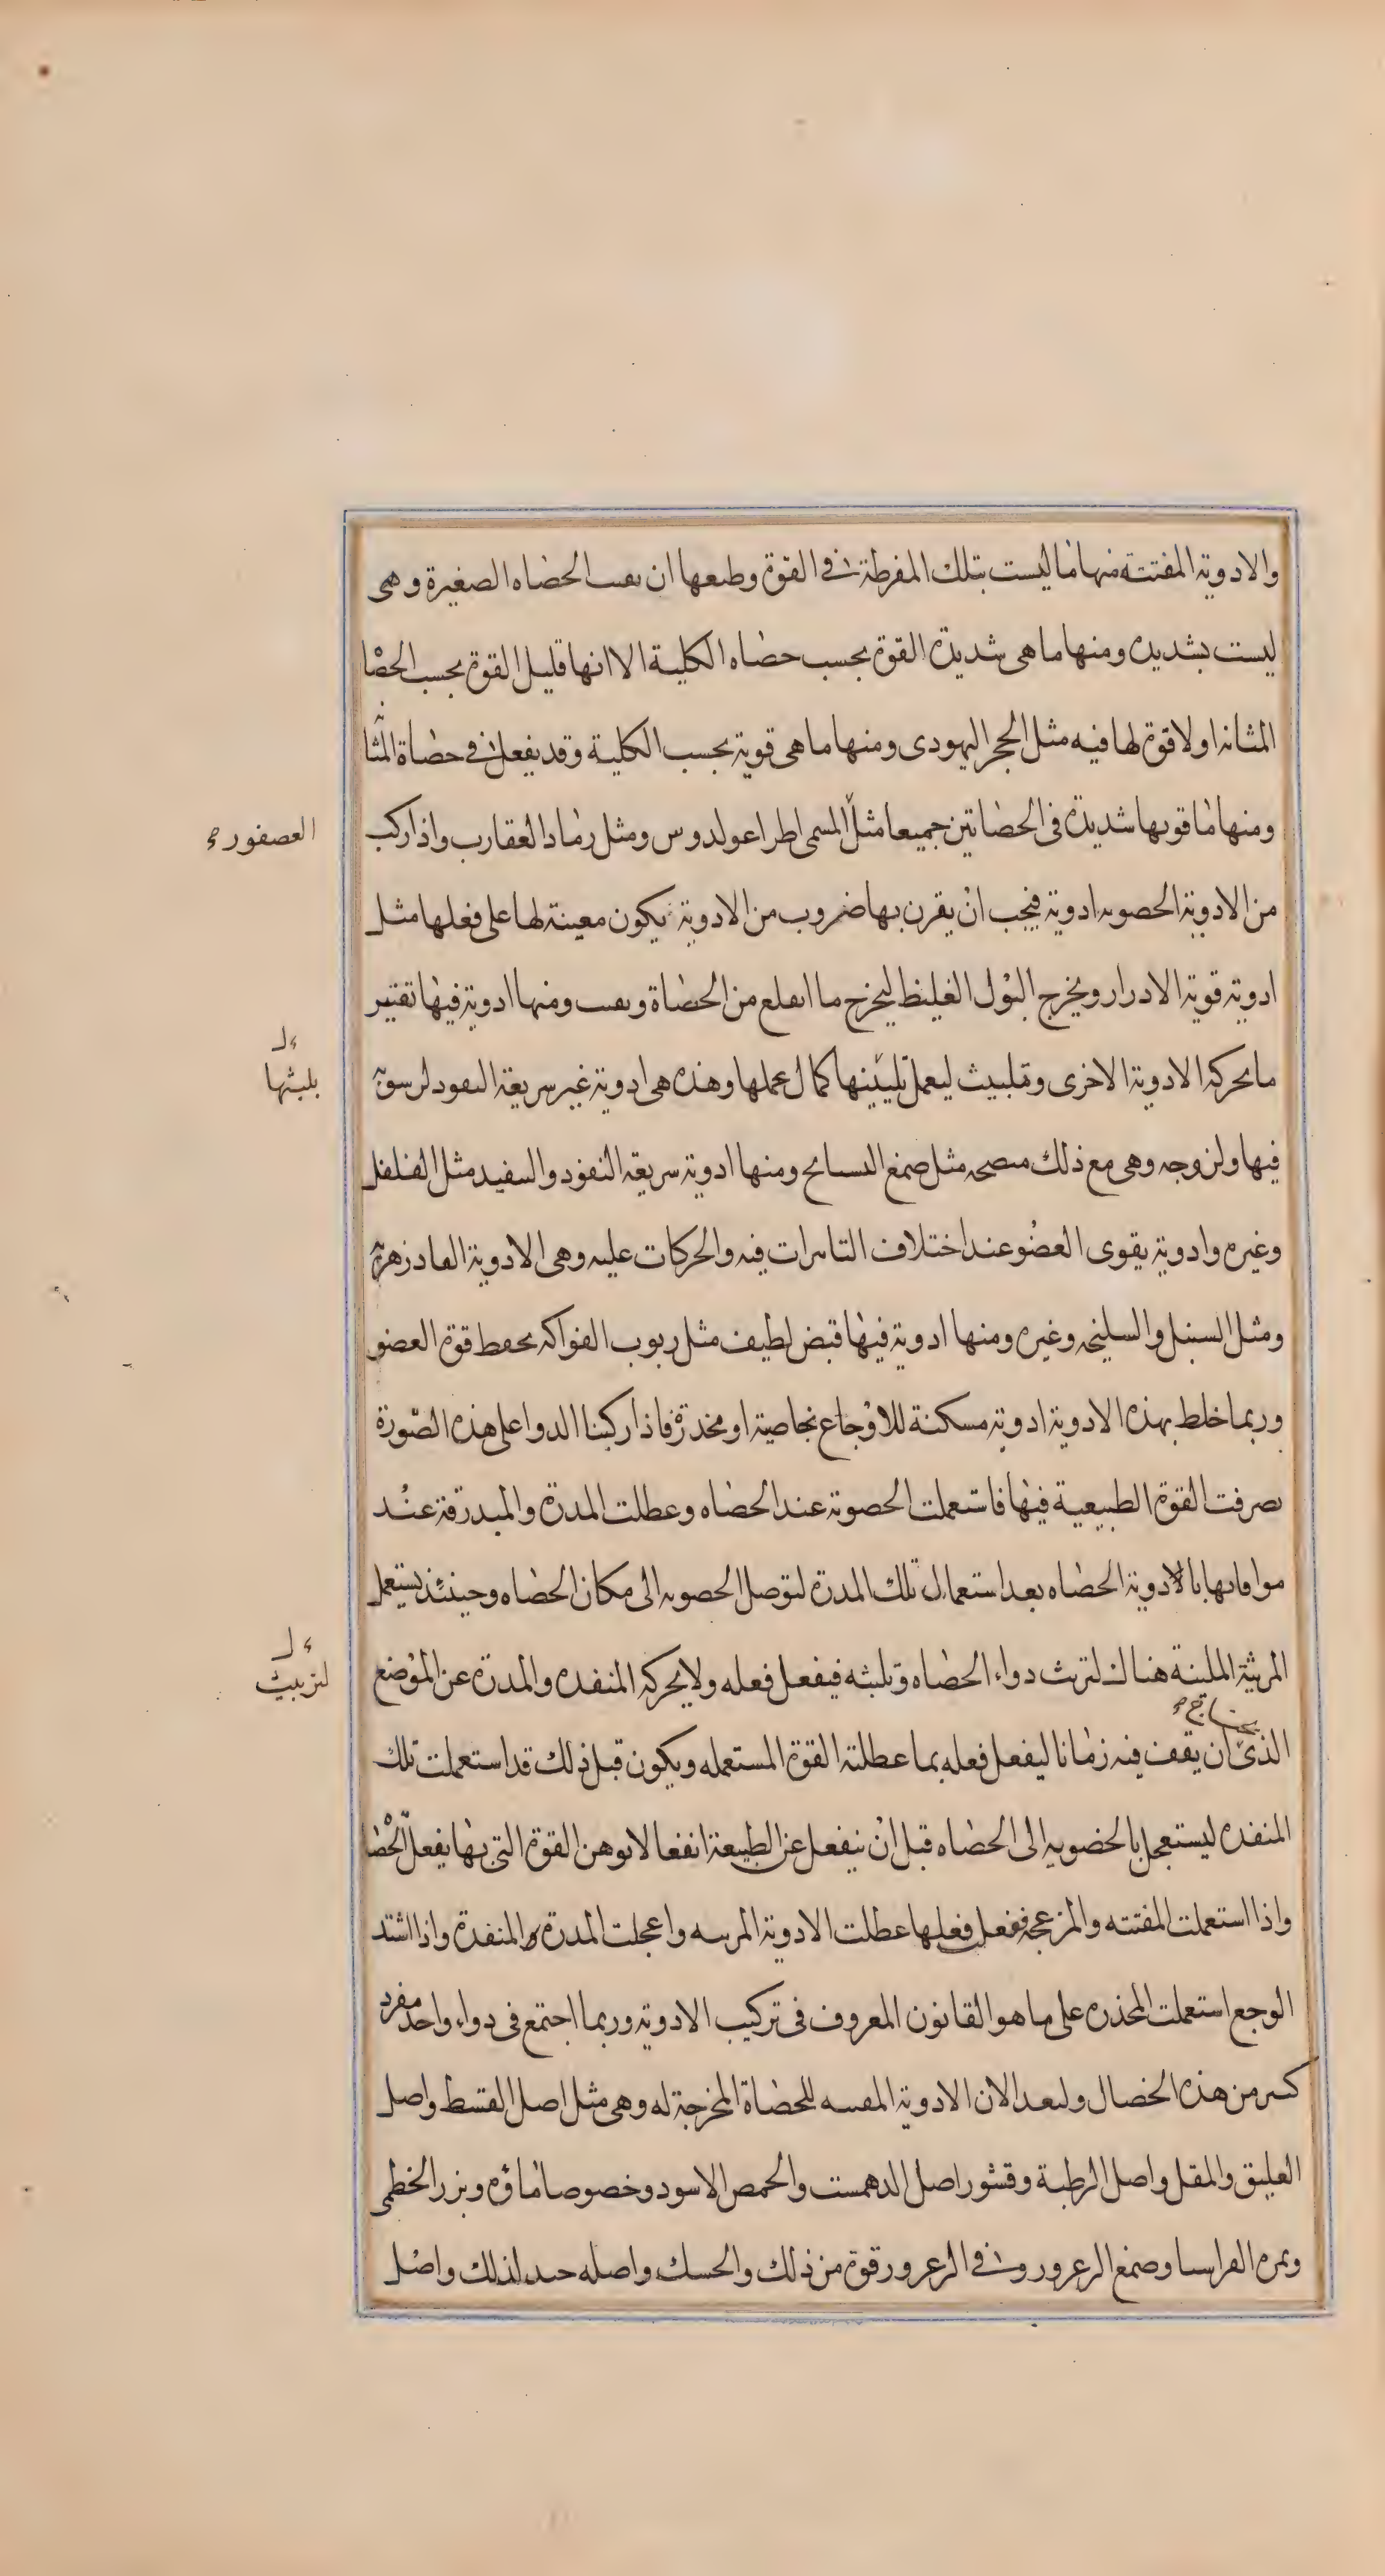 والادوية المفتتة منها ما ليست بتلك المفرطة فى القوة وطبعها ان تفتت الحصاه الصغيرة وهى
ليست بشديده ومنها ما هى شديدة القوة بحسب حصاه الكلية الا انها قليل القوة بحسب الحصا
المثانه او لا قوة لها فيه مثل الحجر اليهودى ومنها ما هى قوية بحسب الكلية وقد يفعل فى حصاة المثانه
ومنها ما قوتها شديدة فى الحصاتين جميعا مثل المسمى اطراغولدوس ومثل رماد العقارب واذا ركب
العصفور
من الادوية الحصويه ادوية فيجب ان يقرن بها ضروب من الادوية يكون معينة لها على فعلها مثل
ادوية قوية الادرار ويخرج البول الغليظ ليخرج ما انقلع من الحصاة وتفتت ومنها ادوية فيها تفتير
ما لحركة الادوية الاخرى وتلبيث ليعمل تلبيثها كمال عملها وهذه هى ادوية غير سريعة النفود لرسوبة
بلبثها
فيها ولزوجه وهى مع ذلك منضجه مثل صمغ البسايج ومنها ادوية سريعة النفود والتنفيد مثل الفلفل
وغيره وادوية يقوى العضو عند اختلاف التاثيرات فيه والحركات عليه وهى الادوية الفادزهرية
ومثل السنبل والسليخه وغيره ومنها ادوية فيها قبض لطيف مثل ربوب الفواكه تحفظ قوة العضو
وربما خلط بهذه الادوية ادوية مسكنة للاوجاع بخاصية او مخدرة فاذا ركبنا الدوا على هذه الصورة
تصرفت القوة الطبيعية فيها فاستعملت الحصوية عند الحصاه وعطلت المدرة والمبدرقة عند
موافاتها بالادوية الحصاه بعد استعمال تلك المدرة لتوصل الحصويه الى مكان الحصاه وحينئذ يستعمل
المريثة الملبثة هناك لترث دواء الحصاه وتلبثه فيفعل فعله ولا يحركه المنفده والمدرة عن الموضع
لتربيث
الذى يحتاج ان يقف فيه زمانا ليفعل فعله بما عطلته القوة المستعمله ويكون قبل ذلك قد استعملت تلك
المنفده ليستعجل بالحصويه الى الحصاه قبل ان ينفعل عن الطبيعة انفعالا يوهن القوة التى بها يفعل الحصا
واذا استعملت المفتته والمزعجه ففعل فعلها عطلت الادوية المريثه واعجلت المدرة والمنفدة واذا اشتد
الوجع استعملت المخدره على ما هو القانون المعروف فى تركيب الادوية وربما اجتمع فى دواء واحد مفرد
كثير من هذه الخصال ولنعد الان الادوية المفتته للحصاة المخرجة له وهى مثل اصل القسط واصل
العليق والمقل واصل الرطبة وقشور اصل الدهمست والحمص الاسود وخصوصا ماؤه وبزر الخطمى
وثمرة الفراسيا وصمغ الزعرور وفى الزعرور قوة من ذلك والحسك واصله جيد لذلك واصل